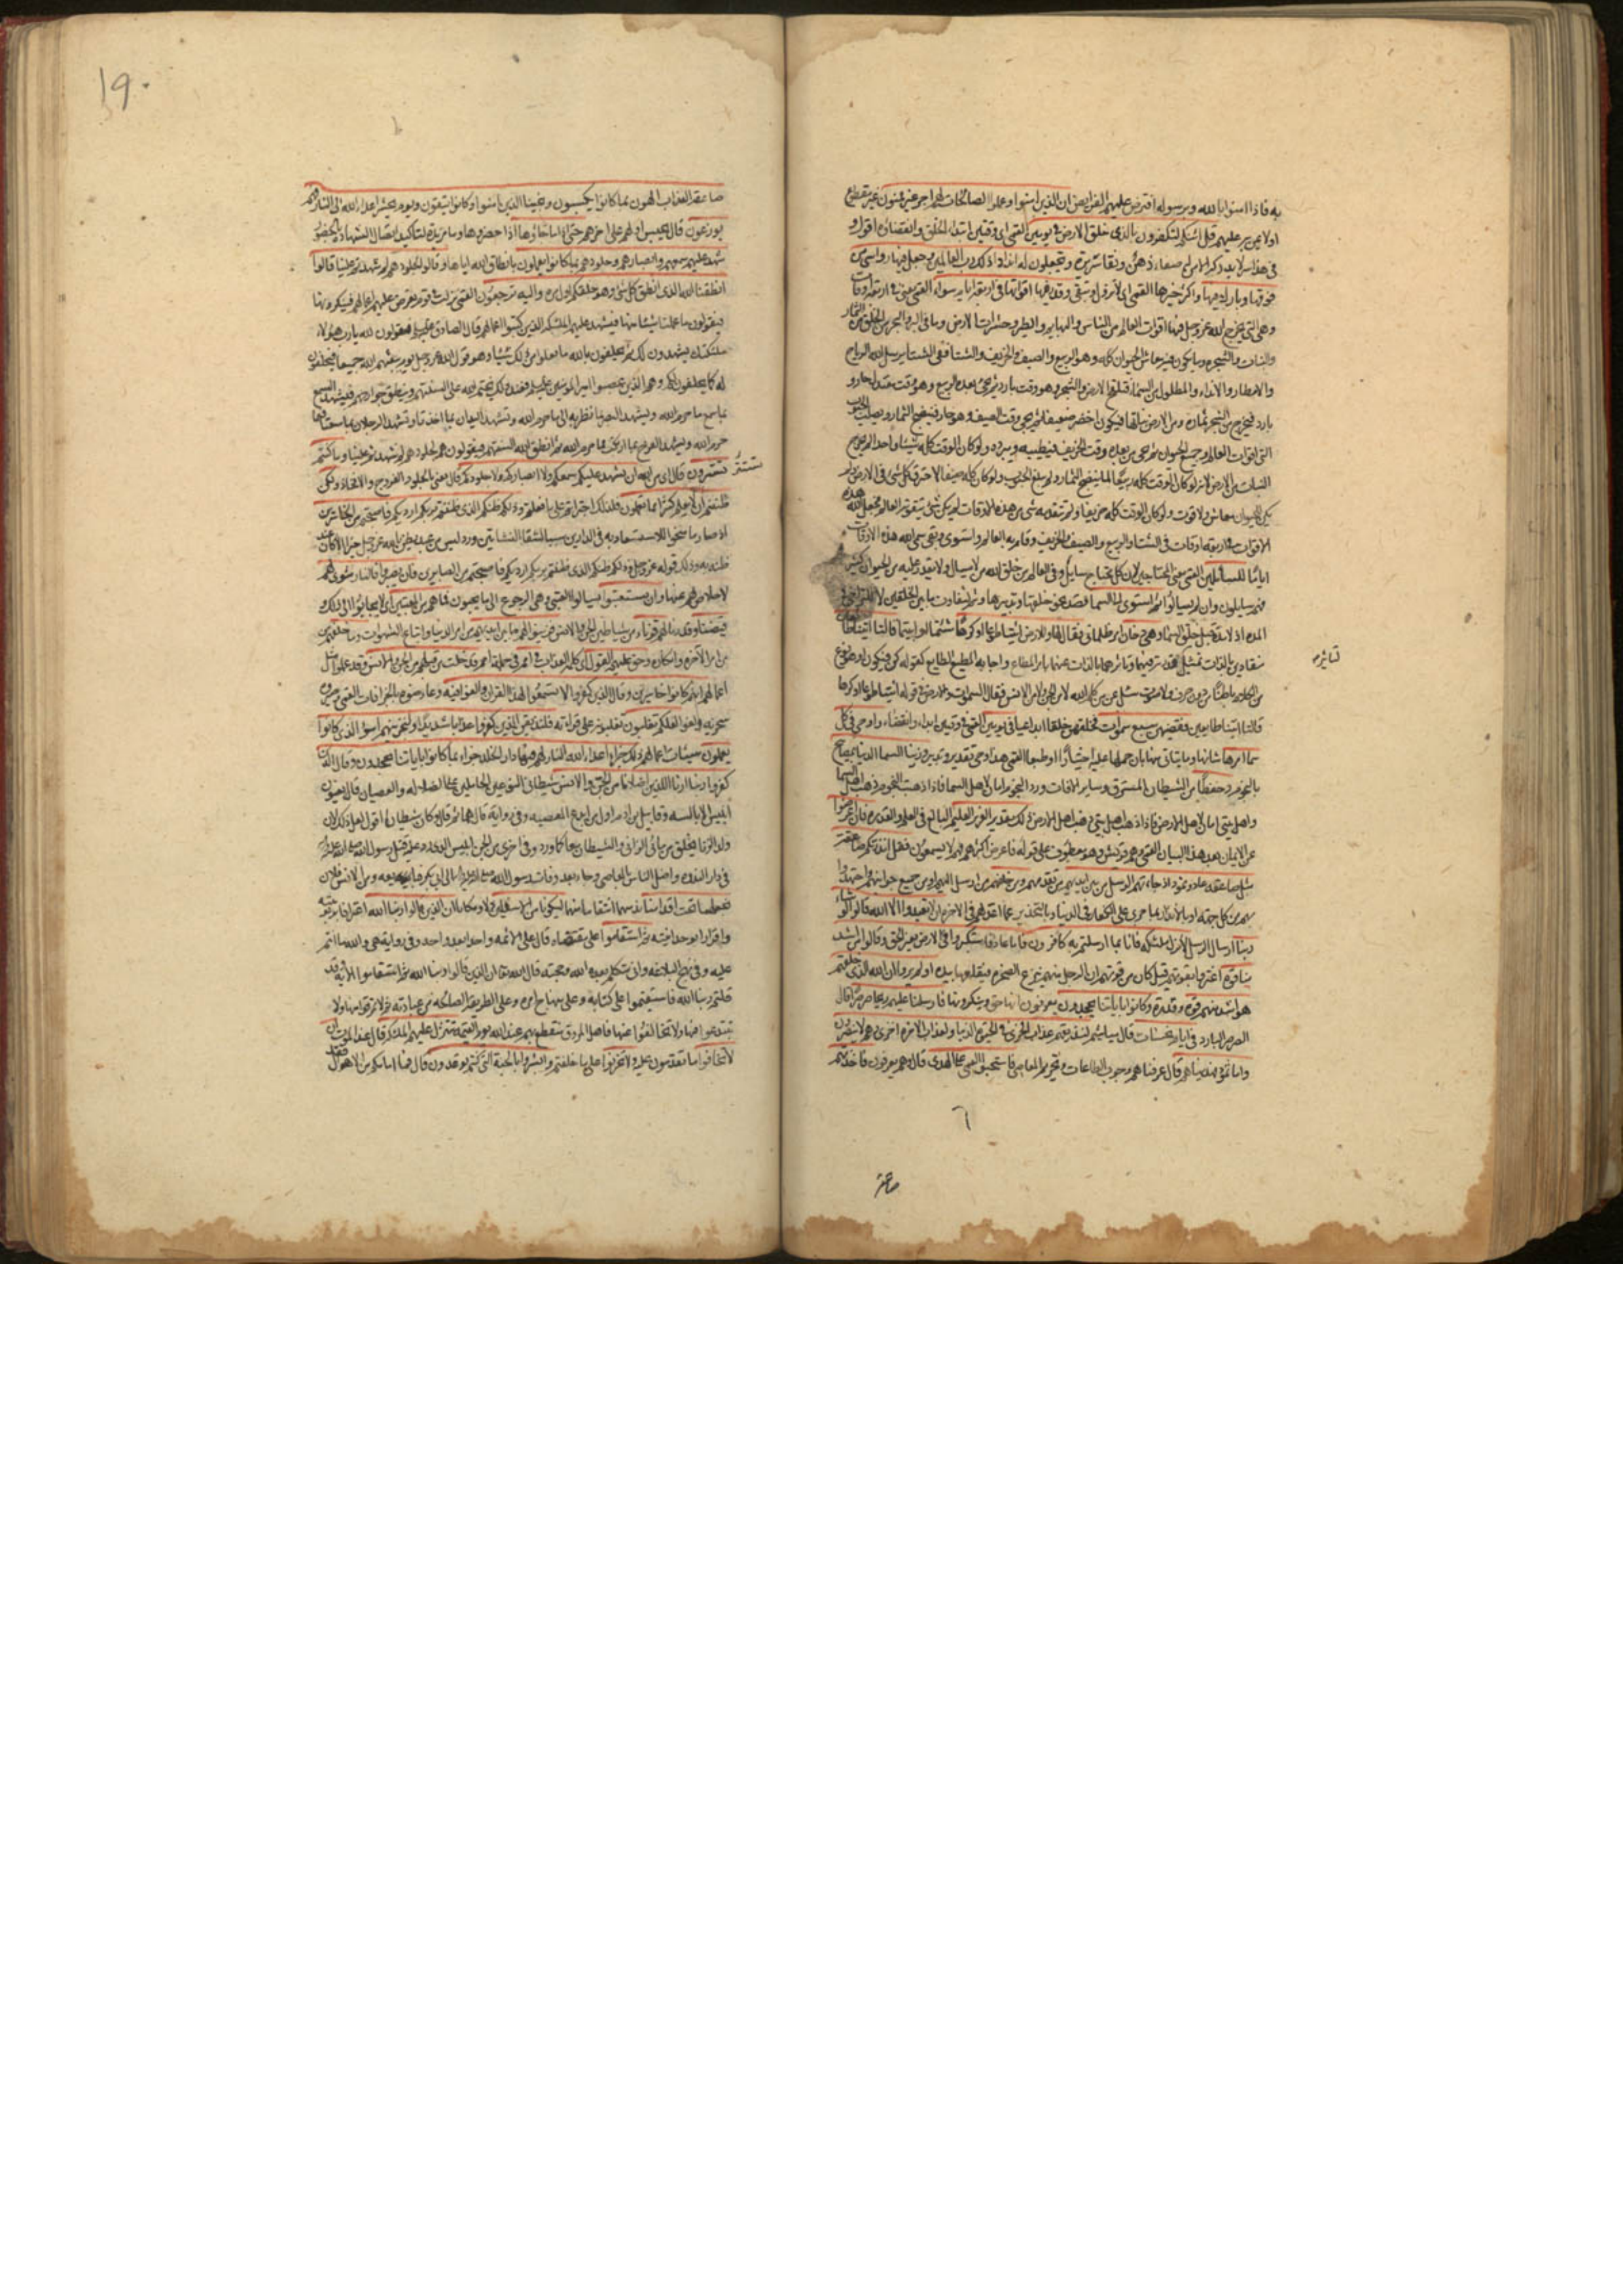 به فاذا امنوا بالله وبرسوله افترض عليهم الفرايض ان الذين امنوا وعملوا الصالحات لهم اجر غير ممنون غير مقطوع
او لا يمن به عليهم قل ائنكم لتكفرون بالذى خلق الارض فى يومين القمى اى وقتين ابتداء الخلق وانقضاؤه اقول و
وتجعلون له اندادا ذلك رب العالمين وجعل فيها رواسى من
فوقها وبارك فيها واكثر خيرها القمى اى لا تزول وتبقى وقدر فيها اقواتها فى اربعة ايام سواء القمى يعنى فى اربعة اوقات
وهى التى يخرج الله عز وجل فيها اقوات العالم من الناس والبهايم والطير وحشرات الارض وما فى البر والبحر من الخلق من الثمار
والنبات والشجر وما يكون فيه معاش الحيوان كله وهو الربيع والصيف والخريف والشتا ففى الشتا يرسل الله الرياح
والامطار والانداء والطلول من السماء فتلقح الارض والشجر وهو وقت بارد ثم يجئ بعده الربيع وهو وقت معتدل حار و
بارد فيخرج من الشجر ثماره ومن الارض نباتها فيكون اخضر ضعيفا ثم يجئ وقت الصيف وهو حار فينضج الثمار ويصلب الحبوب
التى اقوات العالم وجميع الحيوان ثم يجئ من بعده وقت الخريف فيطيبه ويبرده ولو كان الوقت كله شيئا واحدا لم يخرج
النبات من الارض لانه لو كان الوقت كله ربيعا لم ينضج الثمار ولم يبلغ الحبوب ولو كان كله صيفا لاحترق كل شئ فى الارض ولم
يكن للحيوان معاش ولا قوت ولو كان الوقت كله خريفا ولم يتقدمه شئ من هذه الاوقات لم يكن شئ يتقوته العالم فجعل الله هذه
الاقوات فى اربعة اوقات فى الشتاء والربيع والصيف والخريف وقام به العالم واستوى وبقى وسمى الله هذه الاوقات
اياما للسائلين القمى يعنى المحتاجين لان كل محتاج سايل وفى العالم من خلق الله من لا يسال ولا يقدر عليه من الحيوان كثير
فهم سايلون وان لم يسالوا ثم استوى الى السماء قصد نحو خلقها وتدبيرها وثم لتفاوت ما بين الخلقين لا للتراخى فى
المدة اذ لا مدة قبل خلق السماء وهى دخان امر ظلمانى فقال لها وللارض ائتيا طوعا او كرها شئتما او ابيتما قالتا اتينا طائعين
منقادين بالذات تمثيل لقدرته فيهما وتاثرهما بالذات عنها بامر المطاع واجابة المطيع الطايع كقوله كن فيكون
تاثيره
قالتا اتينا طايعين فقضيهن سبع سموات فخلقهن خلقا ابداعيا فى يومين القمى فى وقتين ابداء وانقضاء واوحى فى كل
سماء امرها شانها وما يتاتى منها بان حملها عليه اختيارا او طبعا القمى هذا وحى تقدير وتدبير وزينا السماء الدنيا بمصابيح
بالنجوم وحفظا من الشيطان المسترق وساير الافات ورد النجوم امان لاهل السما فاذا ذهبت النجوم ذهب اهل السما
واهل بيتى امان لاهل الارض فاذا ذهب اهل بيتى ذهب اهل الارض ذلك تقدير العزيز العليم البالغ فى العلم والقدرة فان اعرضوا
عن الايمان بعد هذا البيان القمى وهم قريش وهو معطوف على قوله فاعرض اكثرهم فهم لا يسمعون فقل انذرتكم صاعقة
مثل صاعقة عاد وثمود اذ جاءتهم الرسل من بين ايديهم من تقدمهم ومن خلفهم من ارسل اليهم او من جميع جوانبهم واجتهدوا
بهم من كل جهة او بالانذار بما جرى على الكفار فى الدنيا وبالتحذير عما اعد لهم فى الاخرة ان لا تعبدوا الا الله قالوا لو شاء
ربنا ارسال الرسل لانزل ملئكة فانا بما ارسلتم به كافرون فاما عاد فاستكبروا فى الارض بغير الحق وقالوا من اشد
منا قوة اغتروا بقوتهم قيل كان من قوتهم ان الرجل منهم ينزع الصخرة فيقلعها بيده اولم يروا ان الله الذى خلقهم
هو اشد منهم قوة وقدرة وكانوا باياتنا يجحدون يعرفون انها حق وينكرونها فارسلنا عليهم ريحا صرصرا قال
الصرصر البارد فى ايام نحسات قال مياشيم لنذيقهم عذاب الخزى فى الحيوة الدنيا ولعذاب الاخرة اخزى وهم لا ينصرون
واما ثمود فهديناهم قال عرفناهم وجوب الطاعات وتحريم المعاصى فاستحبوا العمى على الهدى قال وهم يعرفون فاخذتهم
٦
صاعقة
١٩٠
صاعقة العذاب الهون بما كانوا يكسبون ونجينا الذين امنوا وكانوا يتقون ويوم يحشر اعداء الله الى النار فهم
يوزعون قال يحبس اولهم على اخرهم حتى اذا ما جاؤها اذا حضروها وما مزيدة لتاكيد اتصال الشهادة بالحضور
شهد عليهم سمعهم وابصارهم وجلودهم بما كانوا يعملون بانطاق الله اياها وقالوا لجلودهم لم شهدتم علينا قالوا
انطقنا الله الذى انطق كل شئ وهو خلقكم اول مرة واليه ترجعون القمى نزلت فى قوم يعرض عليهم اعمالهم فينكرونها
فيقولون ما عملنا شيئا منها فيشهد عليهم الملئكة الذين كتبوا اعمالهم قال الصادق عليه السلم فيقولون لله يا رب هؤلاء
ملئكتك يشهدون لك ثم يحلفون بالله ما فعلوا من ذلك شيئا وهو قول الله عز وجل يوم يبعثهم الله جميعا فيحلفون
له كما يحلفون لكم وهم الذين غصبوا امير المؤمنين عليه السلم فعند ذلك يختم الله على السنتهم وينطق جوارحهم فيشهد السمع
بما سمع مما حرم الله ويشهد البصر بما نظر به الى ما حرم الله وتشهد اليدان بما اخذتا وتشهد الرجلان بما سعتا فيما
حرم الله ويشهد الفرج بما ارتكب مما حرم الله ثم انطق الله السنتهم فيقولون هم لجلودهم لم شهدتم علينا وما كنتم
تستترون قال اى من الله ان يشهد عليكم سمعكم ولا ابصاركم ولا جلودكم قال يعنى بالجلود الفروج والافخاذ ولكن
تستتر
ظننتم ان الله لا يعلم كثيرا مما تعملون فلذلك اجتراتم على ما فعلتم وذلكم ظنكم الذى ظننتم بربكم ارديكم فاصبحتم من الخاسرين
اذ صار ما منحوا للاستسعاد به فى الدارين سببا لشقاء النشاتين ورد ليس من عبد يظن بالله عز وجل خيرا الا كان عند
ظنه به وذلك قوله عز وجل وذلكم ظنكم الذى ظننتم بربكم ارديكم فاصبحتم من الخاسرين فان يصبروا فالنار مثوى لهم
لا خلاص لهم عنها وان يستعتبوا يسالوا العتبى وهى الرجوع الى ما يحبون فما هم من المعتبين اى لا يجابوا الى ذلك و
قيضنا وقدرنا لهم قرناء من شياطين الجن والانس فزينوا لهم ما بين ايديهم من امر الدنيا واتباع الشهوات وما خلفهم من
من امر الاخرة وانكاره وحق عليهم القول اى كلمة العذاب فى امم فى جملة امم قد خلت من قبلهم من الجن والانس وقد عملوا مثل
اعمالهم انهم كانوا خاسرين وقال الذين كفروا لا تسمعوا لهذا القران والغوا فيه وعارضوه بالخرافات القمى وصيروه
سخرية ولغوا لعلكم تغلبون تغلبونه على قراءته فلنذيقن الذين كفروا عذابا شديدا ولنجزينهم اسوء الذى كانوا
يعملون سيئات اعمالهم ذلك جزاء اعداء الله النار لهم فيها دار الخلد جزاء بما كانوا باياتنا يجحدون وقال الذين
كفروا ربنا ارنا اللذين اضلانا من الجن والانس شيطانى النوعين الحاملين على الضلالة والعصيان قال يعنون
ابليس الابالسة وقابيل بن ادم اول من ابدع المعصية وفى رواية قال هما ثم قال وكان شيطانا اقول لعل ذلك لان
ولد الزنا يخلق من مائى الزانى والشيطان معا كما ورد وفى اخرى من الجن ابليس الذى دل على قتل رسول الله صلى الله عليه واله
فى دار الندوة واضل الناس بالمعاصى وجاء بعد وفات رسول الله صلى الله عليه واله الى ابى بكر فبايعه ومن الانس فلان
نجعلهما تحت اقدامنا ندسهما انتقاما منهما ليكونا من الاسفلين ذلا ومكانا ان الذين قالوا ربنا الله اعترافا بربوبيته
واقرارا بوحدانيته ثم استقاموا على مقتضاه قال على الائمة واحدا بعد واحد وفى رواية هى والله ما انتم
عليه وفى نهج البلاغة وانى متكلم بعدة الله وحجته قال الله تعالى ان الذين قالوا ربنا الله ثم استقاموا الاية وقد
قلتم ربنا الله فاستقيموا على كتابه وعلى منهاج امره وعلى الطريقة الصالحة من عبادته ثم لا تمرقوا منها ولا
تبتدعوا فيها ولا تخالفوا عنها فان اهل المروق منقطع بهم عند الله يوم القيمة تتنزل عليهم الملئكة قال عند الموت ان
لا تخافوا ما تقدمون عليه ولا تحزنوا على ما خلفتم وابشروا بالجنة التى كنتم توعدون قال فما امامكم من الاهوال فقد